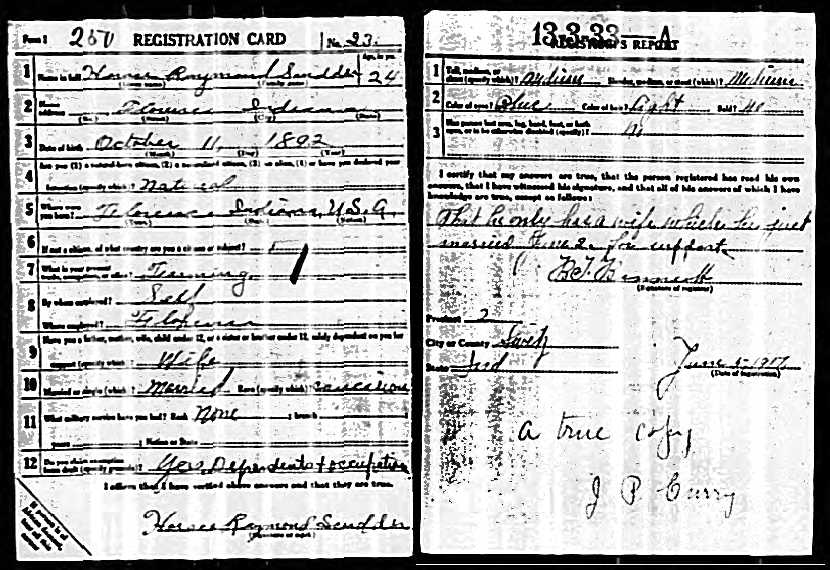 Form 1 250 REGISTRATION CARD No. 23
1 Name in full Horace Raymond Scudder Age, in yrs. 24
(Given name) (Family name)
2 Home address Florence Indiana
(No.) (Street) (City) (State)
3 Date of birth October 11, 1892
(Month) (Day) (Year)
4 Are you (1) a natural-born citizen, (2) a naturalized citizen, (3) an alien, (4) or have you declared your
intention (specify which)? Natural
5 Where were you born? Florence Indiana, U.S.A.
(Town) (State) (Nation)
6 If not a citizen, of what country are you a citizen or subject?
7 What is your present trade, occupation, or office? Farming
8 By whom employed? Self
Where employed? Florence
9 Have you a father, mother, wife, child under 12, or a sister or brother under 12, solely dependent on you for
support (specify which)? Wife
10 Married or single (which)? Married Race (specify which)? Caucasian
11 What military service have you had? Rank None ; branch
years ; Nation or State
12 Do you claim exemption from draft (specify grounds)? Yes, Dependents + occupation
I affirm that I have verified above answers and that they are true.
Horace Raymond Scudder
(Signature or mark)
13-3-33-A
REGISTRAR'S REPORT
1 Tall, medium, or short (specify which)? Medium Slender, medium, or stout (which)? Medium
2 Color of eyes? Blue Color of hair? Light Bald? No
3 Has person lost arm, leg, hand, foot, or both
eyes, or is he otherwise disabled (specify)? No
I certify that my answers are true, that the person registered has read his own
answers, that I have witnessed his signature, and that all of his answers of which I have
knowledge are true, except as follows:
That he only has a wife which he just
married June 2 for support
(Signature of registrar)
Precinct 2
City or County Switz
State Ind
June 5-1917
(Date of registration)
a true copy
J P Curry